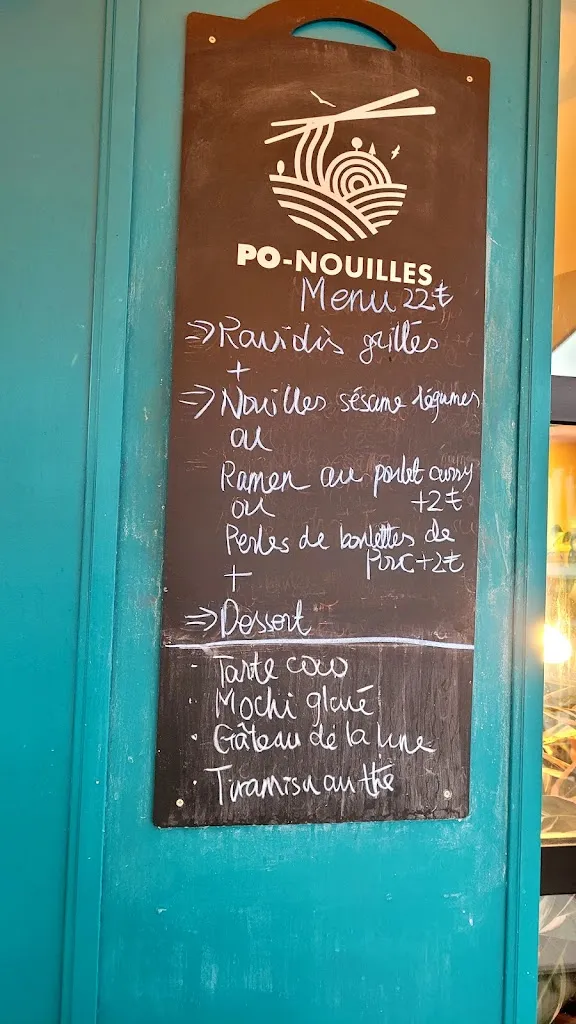 PO-NOUILLES
Menu 22€
⇒ Raviolis grillés
+
⇒ Nouilles sésame légumes
ou
Ramen au poulet curry
ou +2€
Perles de boulettes de
porc +2€
+
⇒ Dessert
- Tarte coco
- Mochi glacé
- Gâteau de la lune
- Tiramisu au thé